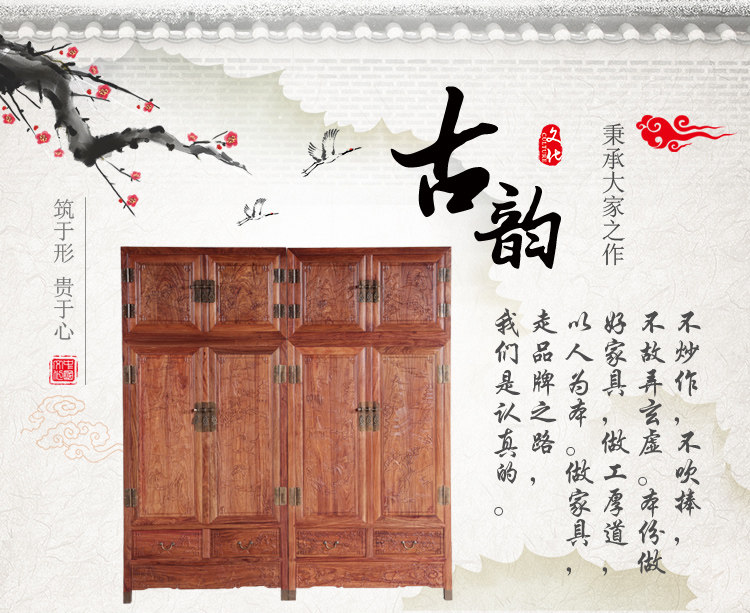 古韵
文化
CULTURE
秉承大家之作
不炒作，不吹捧，
不故弄玄虚。本份做
好家具，做工厚道，
以人为本。做家具，
走品牌之路，
我们是认真的。
筑于形 贵于心